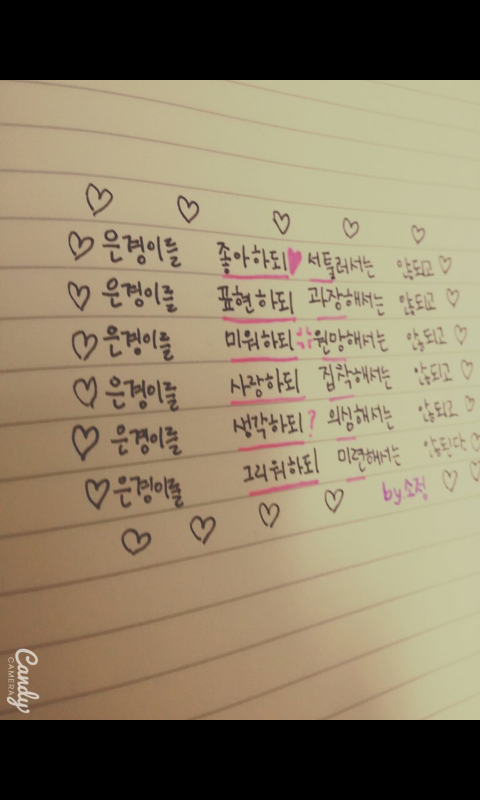 ♡ ♡ ♡ ♡ ♡
♡ 은경이를 좋아하되♥ 서둘러서는 않되고♡
♡ 은경이를 표현하되 과장해서는 않되고♡
♡ 은경이를 미워하되 원망해서는 않되고♡
♡ 은경이를 사랑하되 집착해서는 않되고♡
♡ 은경이를 생각하되? 의심해서는 않되고♡
♡ 은경이를 그리워하되 미련해서는 않된다♡
by소정 ♡ ♡
♡ ♡ ♡ ♡
Candy
CAMERA